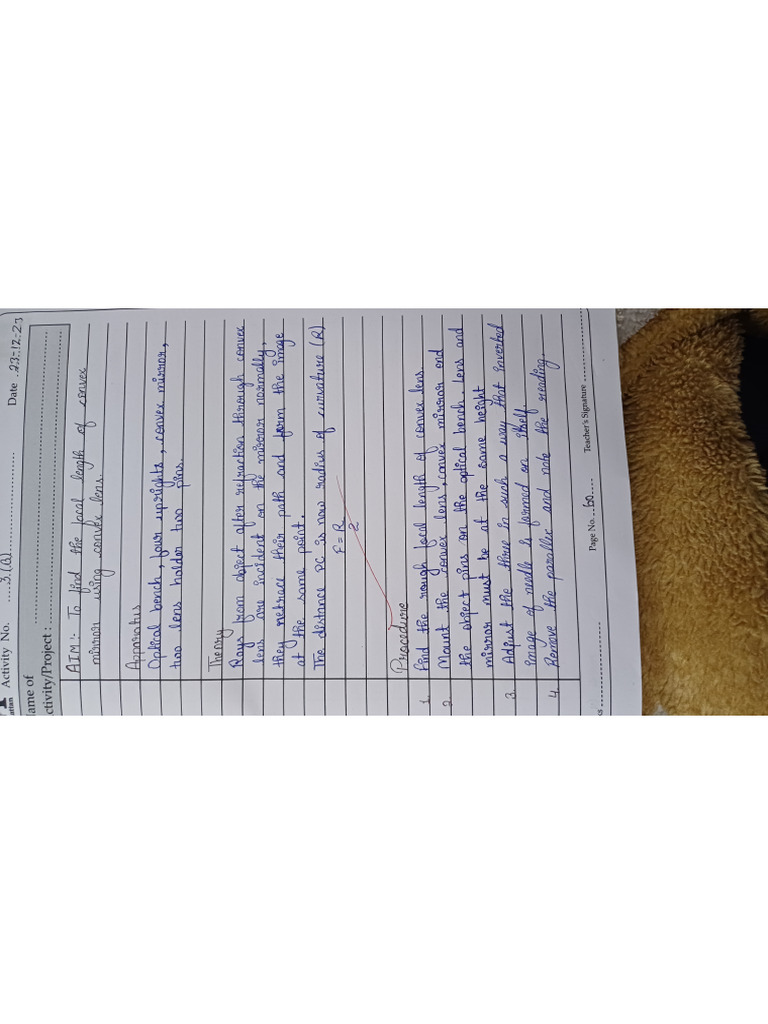 Activity No. 3.(a) Date 23-12-23
ame of
ctivity/Project :
AIM:- To find the focal length of convex
mirror using convex lens.
Apparatus
Optical bench, four uprights, convex mirror,
two lens holder two pins.
Theory
Rays from object after refraction through convex
lens are incident on the mirror normally,
they retrace their path and form the image
at the same point.
The distance PC is now radius of curvature (R)
F = R
2
Procedure
1. Find the rough focal length of convex lens
2 Mount the convex lens, convex mirror and
the object pins on the optical bench. Lens and
mirror must be at the same height
3. Adjust the three in such a way that inverted
image of needle is formed on itself.
4. Remove the parallex and note the reading
Page No. 60 Teacher's Signature